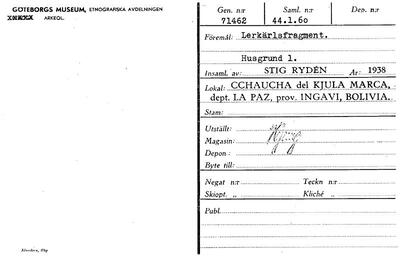 GÖTEBORGS MUSEUM, ETNOGRAFISKA AVDELNINGEN
ARKEOL.
Gen. n:r Saml. n:r Dep. n:r
71462 44.1.60
Föremål: Lerkärlsfragment.
Husgrund 1.
Insaml. av: STIG RYDÉN År: 1938
Lokal: CCHAUCHA del KJULA MARCA,
dept. LA PAZ, prov. INGAVI, BOLIVIA.
Stam:
Utställt:
Magasin:
Depon:
Byte till:
Negat n:r Teckn n:r
Skiopt. „ Kliché „
Publ.